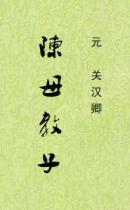 元 关汉卿
陳母教子